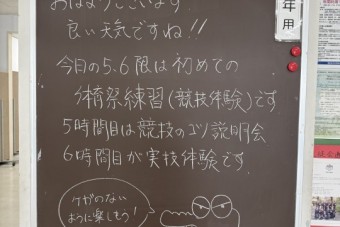 おはようございます
良い天気ですね!!
今日の5.6限は初めての
祭練習(競技体験)です
5時間目は競技のコツ説明会
6時間目が実技体験です
ケガのない
ように楽しもう!
年用